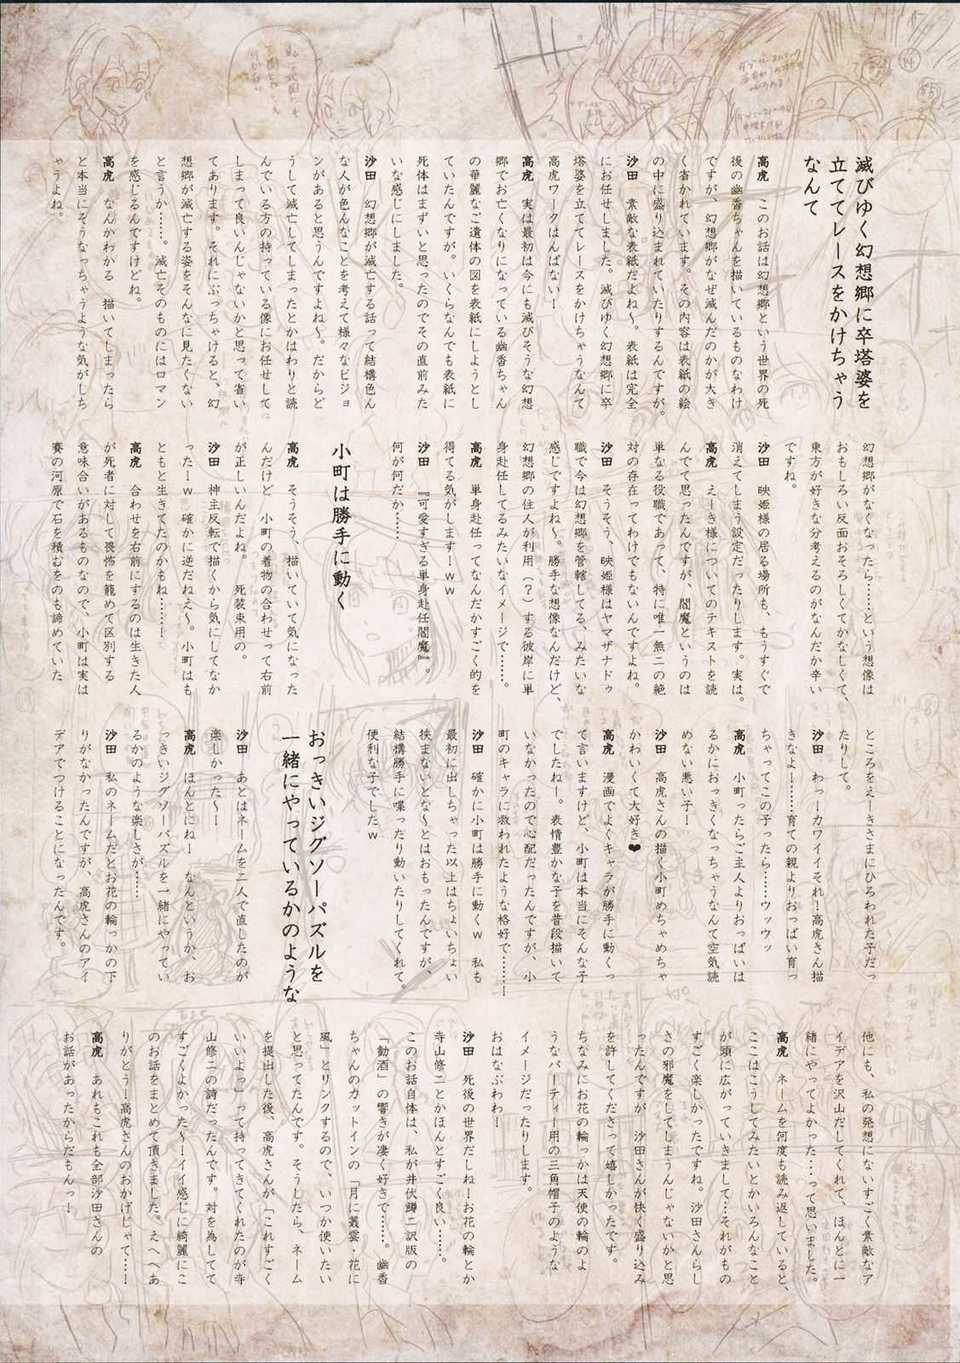 滅びゆく幻想郷に卒塔婆を
立ててレースをかけちゃう
なんて
高虎　このお話は幻想郷という世界の死
後の幽香ちゃんを描いているものなわけ
ですが、幻想郷がなぜ滅んだのかが大き
く省かれています。その内容は表紙の絵
の中に盛り込まれていたりするんですが。
沙田　素敵な表紙だよね〜。表紙は完全
にお任せしました。滅びゆく幻想郷に卒
塔婆を立ててレースをかけちゃうなんて
高虎ワークはんぱない！
高虎　実は最初は今にも滅びそうな幻想
郷でお亡くなりになっている幽香ちゃん
の華麗なご遺体の図を表紙にしようとし
ていたんですが。いくらなんでも表紙に
死体はまずいと思ったのでその直前みた
いな感じにしました。
沙田　幻想郷が滅亡する話って結構色ん
な人が色んなことを考えて様々なビジョ
ンがあると思うんですよね〜。だからど
うして滅亡してしまったとかはわりと読
んでいる方の持っている像にお任せして
しまって良いんじゃないかと思って省い
てあります。それにぶっちゃけると、幻
想郷が滅亡する姿をそんなに見たくない
と言うか……。滅亡そのものにはロマン
を感じるんですけどね。
高虎　なんかわかる　描いてしまったら
と本当にそうなっちゃうような気がしち
ゃうよね。
幻想郷がなくなったら……という想像は
おもしろい反面おそろしくてかなしくて、
東方が好きな分考えるのがなんだか辛い
ですね。
沙田　映姫様の居る場所も、もうすぐで
消えてしまう設定だったりします。実は。
高虎　えーき様についてのテキストを読
んでて思ったんですが、閻魔というのは
単なる役職であって、特に唯一無二の絶
対の存在ってわけでもないんですよね。
沙田　そうそう、映姫様はヤマザナドゥ
職で今は幻想郷を管轄してる、みたいな
感じですよね〜。勝手な想像なんだけど、
幻想郷の住人が利用（？）する彼岸に単
身赴任してるみたいなイメージで……。
高虎　単身赴任ってなんだかすごく的を
得てる気がします！ｗｗ
沙田　『可愛すぎる単身赴任閻魔』。
何が何だか……
小町は勝手に動く
高虎　そうそう、描いていて気になった
んだけど　小町の着物の合わせって右前
が正しいんだよね。　死装束用の。
沙田　神主反転で描くから気にしてなか
った！ｗ　確かに逆だねえ〜。小町はも
ともと生きてたのかもね……！
高虎　合わせを右前にするのは生きた人
が死者に対して畏怖を籠めて区別する
意味合いがあるものなので、小町は実は
賽の河原で石を積むをのも諦めていた
ところをえーきさまにひろわれた子だっ
たりして。
沙田　わっーカワイイそれ！高虎さん描
きなよ！……育ての親よりおっぱい育っ
ちゃってこの子ったら……ウッウッ
高虎　小町ったらご主人よりおっぱいは
るかにおっきくなっちゃうなんて空気読
めない悪い子！
沙田　高虎さんの描く小町めちゃめちゃ
かわいくて大好き❤
高虎　漫画でよくキャラが勝手に動くっ
て言いますけど、小町は本当にそんな子
でしたねー。表情豊かな子を普段描いて
いなかったので心配だったんですが、小
町のキャラに救われたような格好で……！
沙田　確かに小町は勝手に動くｗ　私も
最初に出しちゃった以上はちょいちょい
挟まないとな〜とはおもったんですが、
結構勝手に喋ったり動いたりしてくれて
便利な子でしたｗ
おっきいジグソーパズルを
一緒にやっているかのような
沙田　あとはネームを二人で直したのが
楽しかった〜！
高虎　ほんとにね！　なんというか、お
っきいジグソーパズルを一緒にやってい
るかのような楽しさが……！
沙田　私のネームだとお花の輪っかの下
りがなかったんですが、高虎さんのアイ
デアでつけることになったんです。
他にも、私の発想にないすごく素敵なア
イデアを沢山だしてくれて、ほんとに一
緒にやってよかった……って思いました。
高虎　ネームを何度も読み返していると、
ここはこうしてみたいとかいろんなこと
が頭に広がっていきまして…それがもの
すごく楽しかったですね。沙田さんらし
さの邪魔をしてしまうんじゃないかと思
ったんですが　沙田さんが快く盛り込み
を許してくださって嬉しかったです。
ちなみにお花の輪っかは天使の輪のよ
うなパーティー用の三角帽子のような
イメージだったりします。
おはなぶわわ！
沙田　死後の世界だしね！お花の輪とか
寺山修二とかほんとすごく良い……。
このお話自体は、私が井伏鱒二訳版の
「勧酒」の響きが凄く好きで……。幽香
ちゃんのカットインの「月に叢雲・花に
風」とリンクするので、いつか使いたい
と思ってたんです。そうしたら、ネーム
を提出した後、高虎さんが「これすごく
いいよっ」って持ってきてくれたのが寺
山修二の詩だったんです。対を為してて
すごくよかった〜！イイ感じに綺麗にこ
のお話をまとめて頂きました。えへへあ
りがとう！高虎さんのおかげじゃて……！
高虎　あれもこれも全部沙田さんの
お話があったからだもんっ！